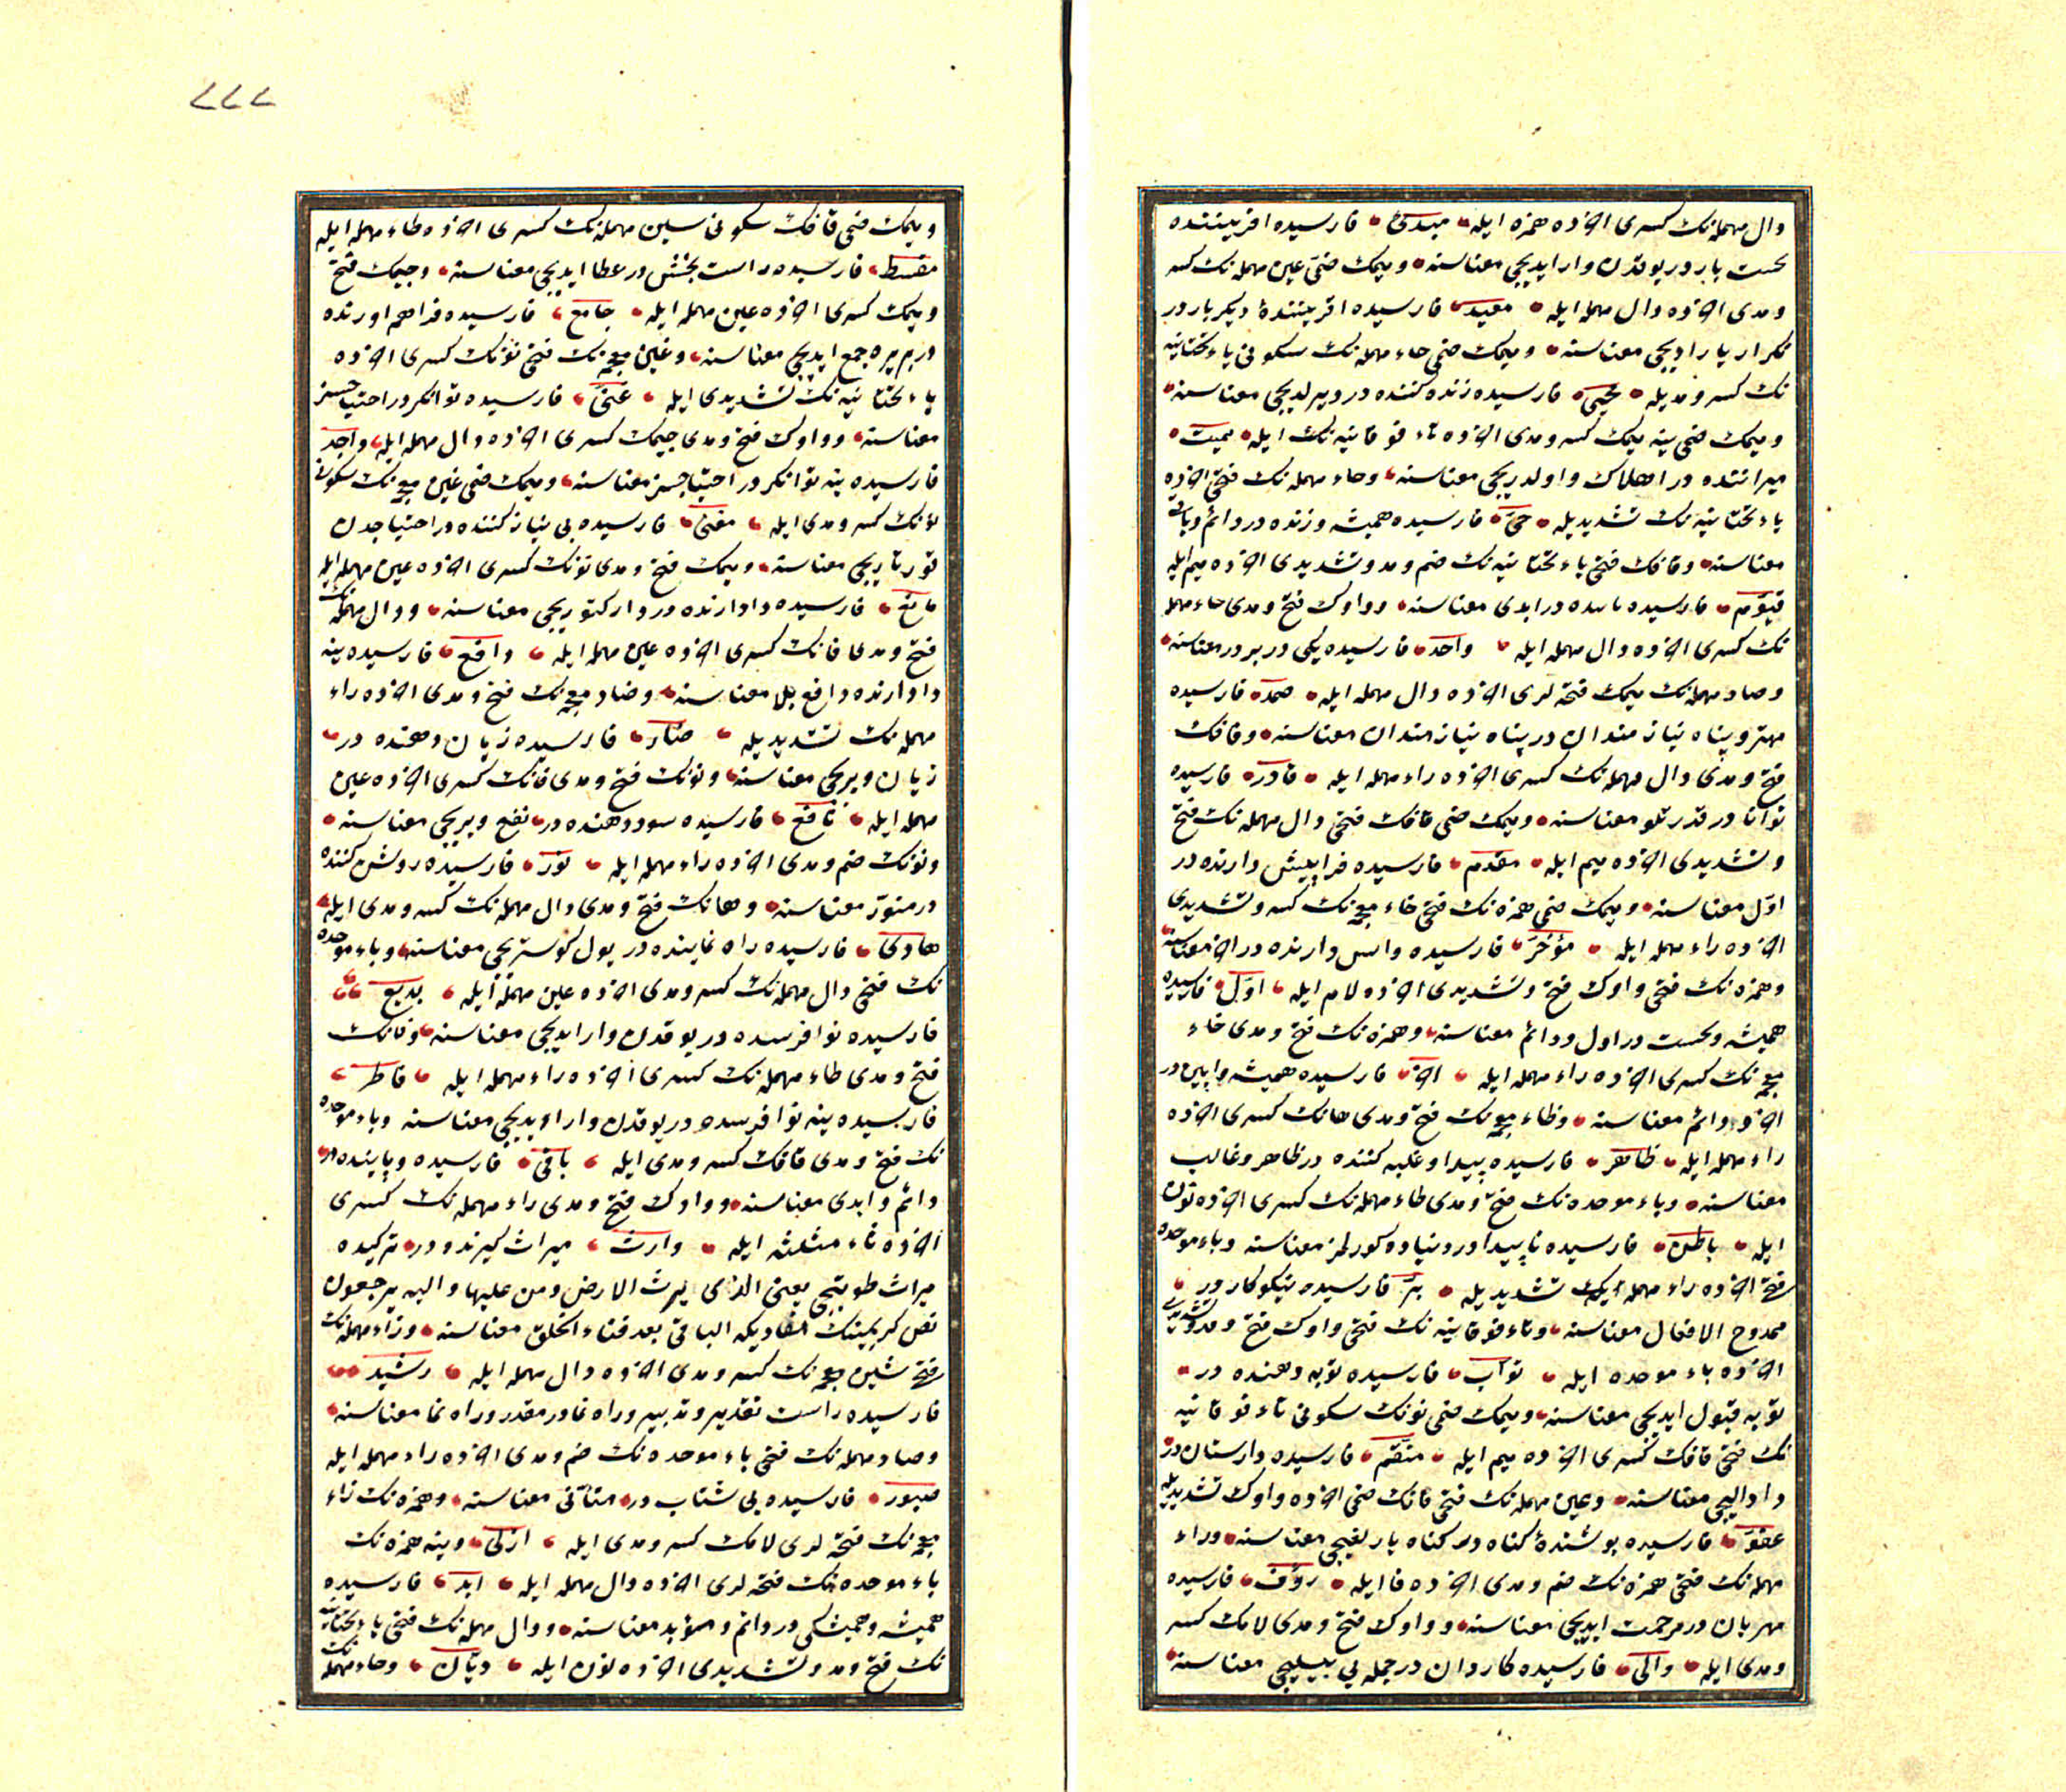 دال مهمله‌نك كسرى اخرده همزه ايله مبدئ فارسيده افريننده
نخست بار در يوقدن وار ايديجى معناسنه و ميمك ضمى عين مهمله‌نك كسر
و مدى اخرده دال مهمله ايله معيد فارسيده افرينندهٔ ديكر بار در
تكرار يارا ديجى معناسنه و ميمك ضمى حاء مهمله‌نك سكونى ياء تحتانيه
نك كسر و مديله محيى فارسيده زنده كننده در ديرلديجى معناسنه
و ميمك ضمى ينه ميمك كسر و مدى اخرده تاء فوقانيه‌نك ايله مميت
ميراننده در اهلاك و اولديريجى معناسنه و حاء مهمله‌نك فتحى اخرده
ياء تحتانيه‌نك تشديديله حىّ فارسيده هميشه و زنده در دائم و باقى
معناسنه و قافك فتحى ياء تحتانيه‌نك ضم و مد و تشديدى اخرده ميم ايله
قيّوم فارسيده در ابدى معناسنه و واوك فتح و مدى حاء مهمله
نك كسرى اخرده دال مهمله ايله واحد فارسيده يكى در بر در معناسنه
و صاد مهمله‌نك ميمك فتحه‌لرى اخرده دال مهمله ايله صمد فارسيده
مهتر و پناه نيازمندان در پناه نيازمندان معناسنه و قافك
فتح و مدى دال مهمله‌نك كسرى اخرده راء مهمله ايله قادر فارسيده
توانا در قدرتلو معناسنه و ميمك ضمى قافك فتحى دال مهمله‌نك فتح
و تشديدى اخرده ميم ايله مقدم فارسيده فرا پيش دارنده در
اوّل معناسنه و ميمك ضمى همزه‌نك فتحى خاء معجمه‌نك كسر و تشديدى
اخرده راء مهمله ايله مؤخّر فارسيده واپس دارنده در اخر معناسنه
و همزه‌نك فتحى واوك فتح و تشديدى اخرده لام ايله اوّل فارسيده
هميشه و نخست در اول و دائم معناسنه و همزه‌نك فتح و مدى خاء
معجمه‌نك كسرى اخرده راء مهمله ايله اخر فارسيده هميشه و اپسين در
اخر و دائم معناسنه و ظاء معجمه‌نك فتح و مدى هانك كسرى اخرده
راء مهمله ايله ظاهر فارسيده پيدا و غلبه كننده در ظاهر و غالب
معناسنه و باء موحده‌نك فتح و مدى طاء مهمله‌نك كسرى اخرده نون
ايله باطن فارسيده ناپيدا در دنياده كورلمز معناسنه و باء موحده
فتح اخرده راء مهمله‌نك تشديديله برّ فارسيده نيكوكار در
ممدوح الافعال معناسنه و تاء فوقانيه‌نك فتحى واوك فتح و مد و تشديدى
اخرده باء موحده ايله توّاب فارسيده توبه دهنده در
توبه قبول ايديجى معناسنه و ميمك ضمى نونك سكونى تاء فوقانيه
نك فتحى قافك كسرى اخرده ميم ايله منتقم فارسيده دادستان در
داد اليجى معناسنه و عين مهمله‌نك فتحى فانك ضمى اخرده واوك تشديديله
عفوّ فارسيده پوشندهٔ كناه در كناه يارلغيجى معناسنه و راء
مهمله‌نك فتحى همزه‌نك ضم و مدى اخرده فا ايله رؤف فارسيده
مهربان در مرحمت ايديجى معناسنه و واوك فتح و مدى لامك كسر
و مدى ايله والى فارسيده كاردان در جمله‌يى بيليجى معناسنه
و ميمك ضمى قافك سكونى سين مهمله‌نك كسرى اخرده طاء مهمله ايله
مقسط فارسيده راست بخش در عطا ايديجى معناسنه و جيمك فتح
و ميمك كسرى اخرده عين مهمله ايله جامع فارسيده فراهم اورنده
در بر يره جمع ايديجى معناسنه و غين معجمه‌نك فتحى نونك كسرى اخرده
ياء تحتانيه‌نك تشديدى ايله غنىّ فارسيده توانكر در احتياجسز
معناسنه و واوك فتح و مدى جيمك كسرى اخرده دال مهمله ايله واجد
فارسيده ينه توانكر در احتياجسز معناسنه و ميمك ضمى غين معجمه‌نك سكونى
نونك كسر و مدى ايله مغنى فارسيده بى نياز كننده در احتياجدن
قورتاريجى معناسنه و ميمك فتح و مدى نونك كسرى اخرده عين مهمله ايله
مانع فارسيده وادارنده در معناسنه و دال مهمله‌نك
فتح و مدى فانك كسرى اخرده عين مهمله ايله دافع فارسيده ينه
وادارنده دافع بلا معناسنه و ضاد معجمه‌نك فتح و مدى اخرده راء
مهمله‌نك تشديديله ضارّ فارسيده زيان دهنده در
زيان ويريجى معناسنه و نونك فتح و مدى فانك كسرى اخرده عين
مهمله ايله نافع فارسيده سود دهنده در نفع ويريجى معناسنه
و نونك ضم و مدى اخرده راء مهمله ايله نور فارسيده روشن كننده
در منوّر معناسنه و هانك فتح و مدى دال مهمله‌نك كسر و مدى ايله
هادى فارسيده راه نماينده در يول كوستريجى معناسنه و باء موحده
نك فتحى دال مهمله‌نك كسر و مدى اخرده عين مهمله ايله بديع
فارسيده در يوقدن وار ايديجى معناسنه و فانك
فتح و مدى طاء مهمله‌نك كسرى اخرده راء مهمله ايله فاطر
فارسيده ينه در يوقدن وار ايديجى معناسنه و باء موحده
نك فتح و مدى قافك كسر و مدى ايله باقى فارسيده و پاينده در
دائم و ابدى معناسنه و واوك فتح و مدى راء مهمله‌نك كسرى
اخرده ثاء مثلثه ايله وارث ميراث كيرنده در
ميراث طوتيجى يعنى الذى يرث الارض ومن عليها و اليه يرجعون
نص كريمنك الباقى بعد فناء الخلق معناسنه و راء مهمله‌نك
فتح شين معجمه‌نك كسر و مدى اخرده دال مهمله ايله رشيد
فارسيده راست تقدير و تدبير و راه نما در مقدر و راه نما معناسنه
و صاد مهمله‌نك فتحى باء موحده‌نك ضم و مدى اخرده راء مهمله ايله
صبور فارسيده بى شتاب در متأنى معناسنه و همزه‌نك زاء
معجمه‌نك فتحه‌لرى لامك كسر و مدى ايله ازلى وينه همزه‌نك
باء موحده‌نك فتحه‌لرى اخرده دال مهمله ايله ابد فارسيده
هميشه و هميشكى در دائم و مؤبد معناسنه و دال مهمله‌نك فتحى ياء تحتانيه
نك فتح و مد و تشديدى اخرده نون ايله ديّان و حاء مهمله‌نك